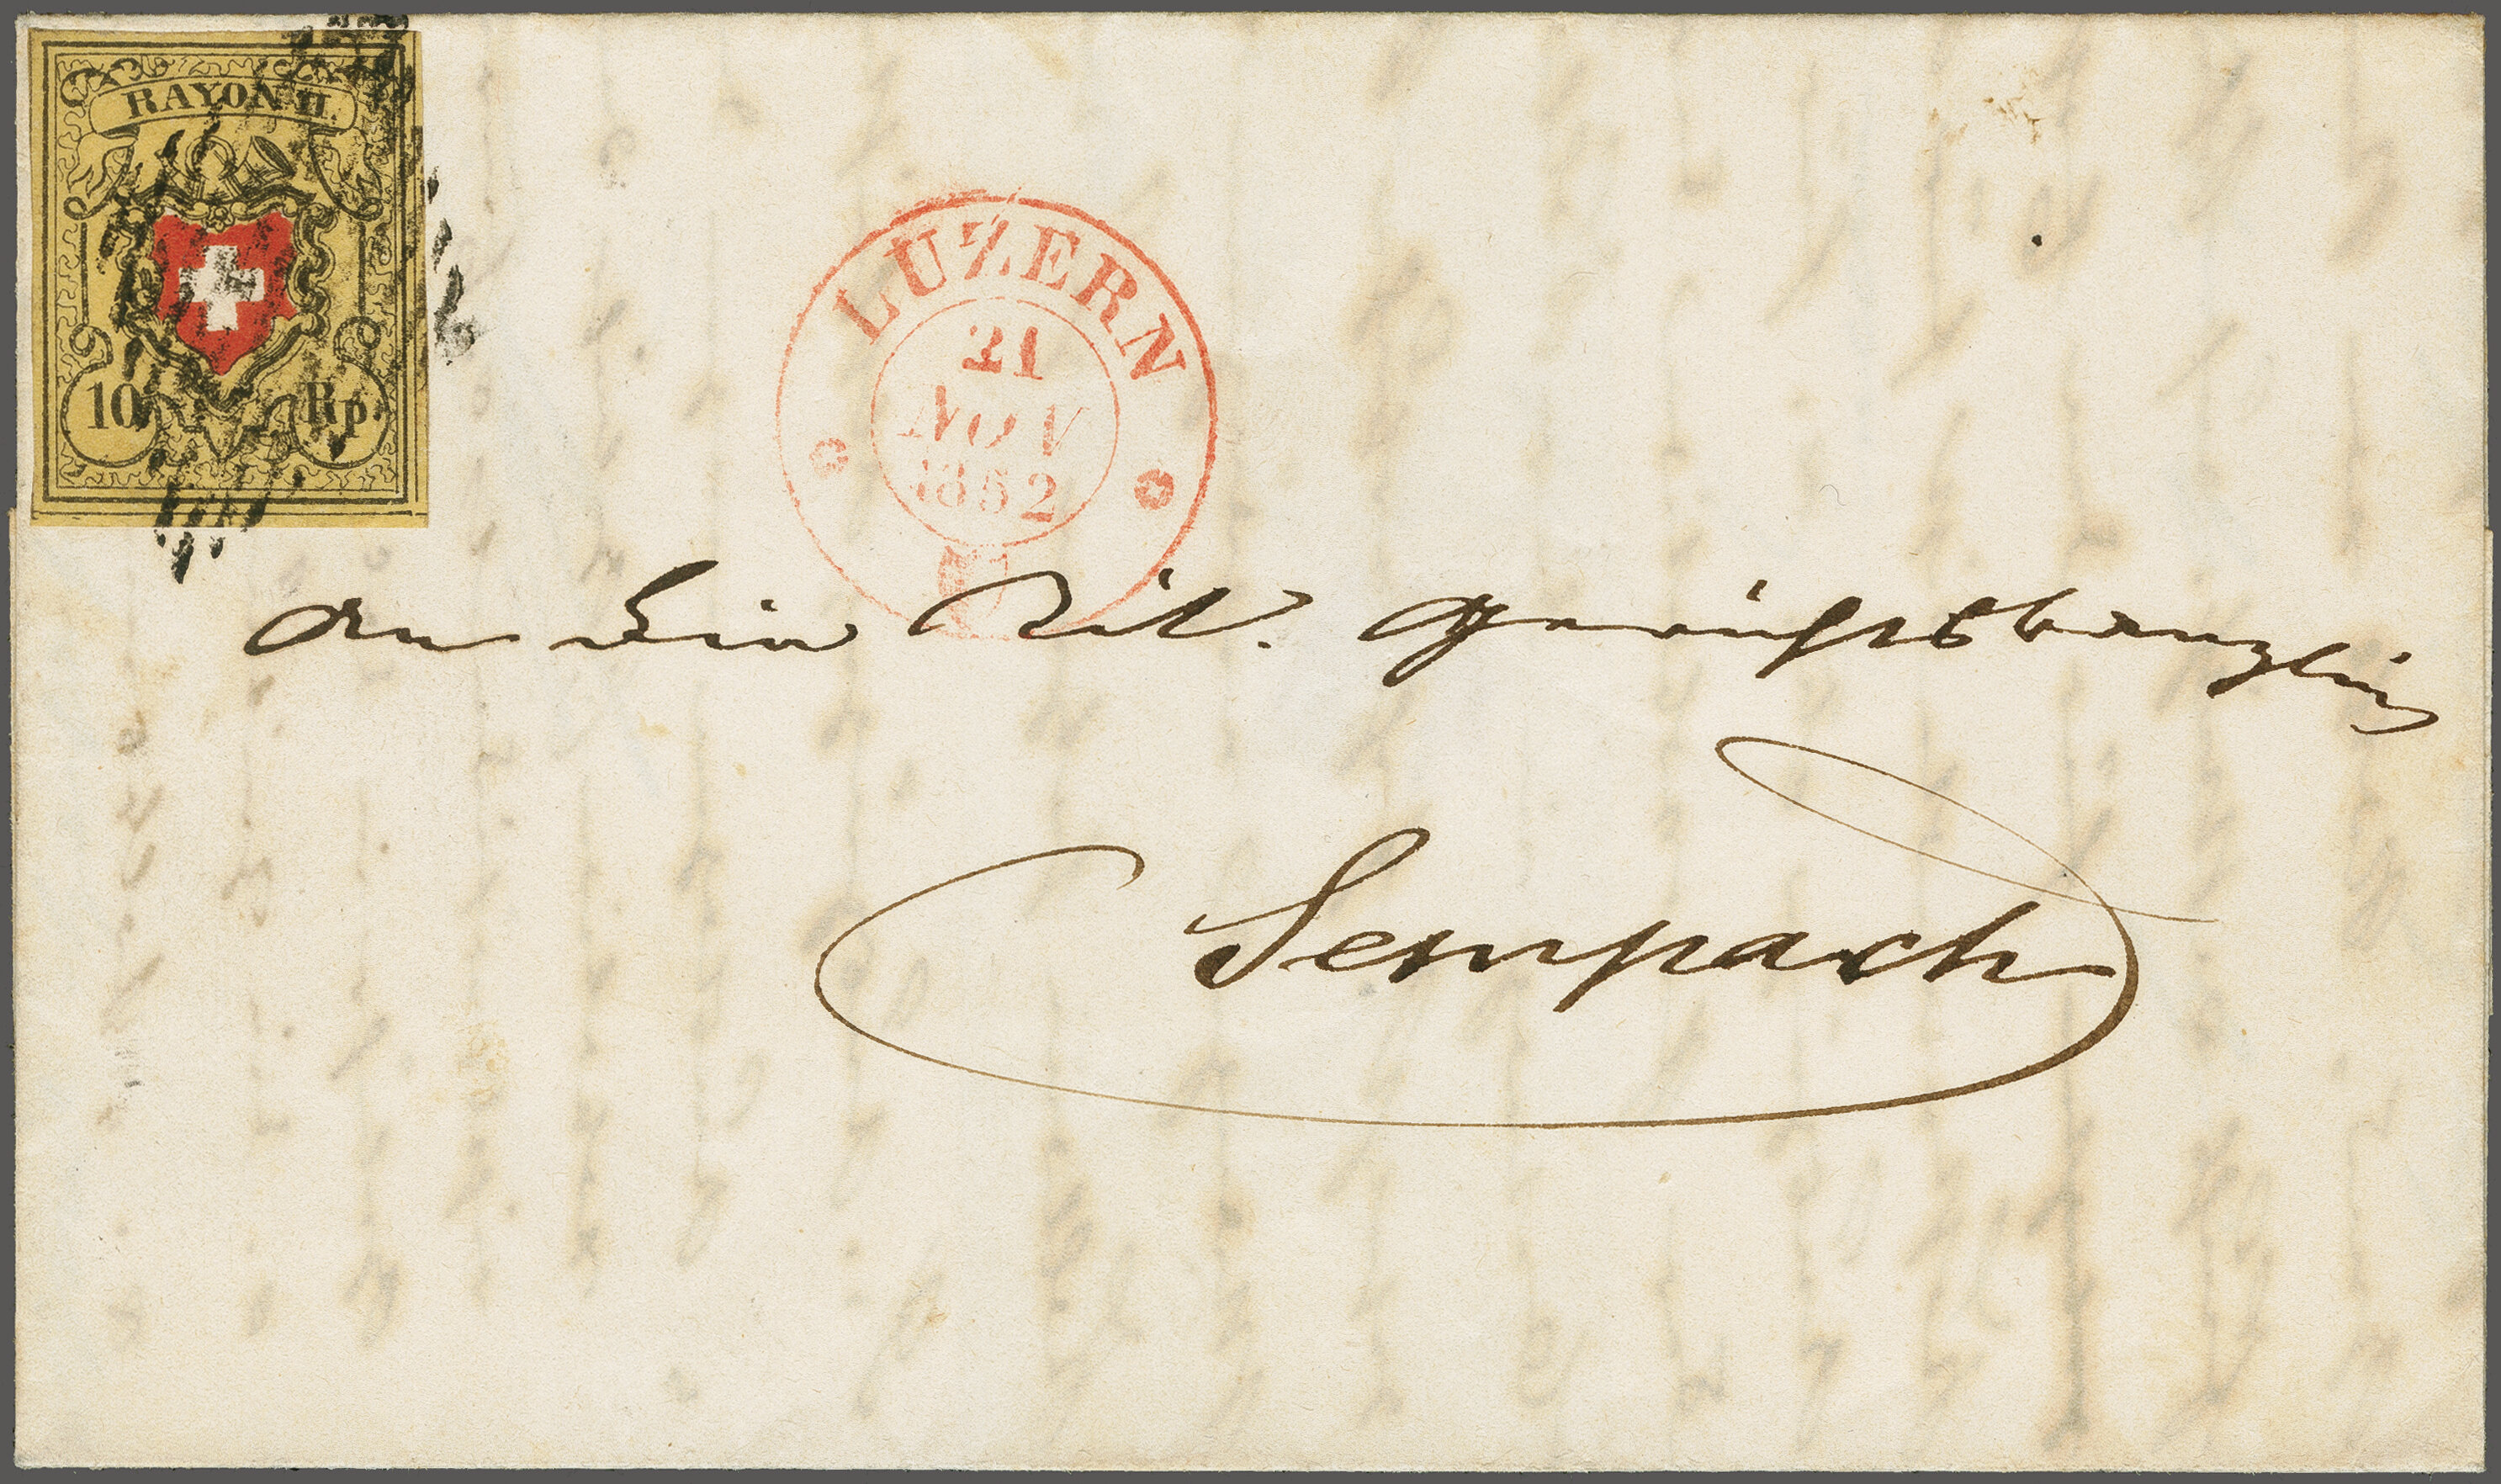 RAYON II.
10 Rp.
LUZERN
21
NOV
1852
An die Titl. Gerichtskanzlei
Sempach